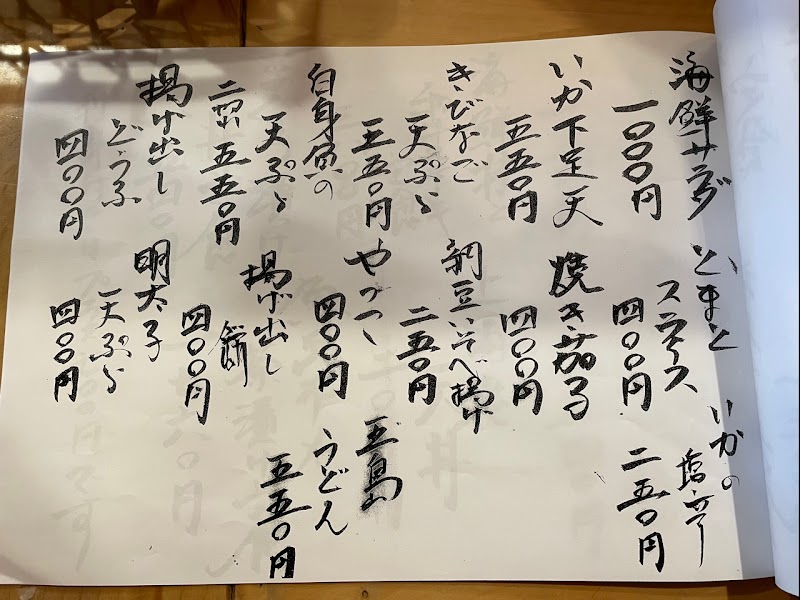 海鮮サラダ
一〇〇〇円
いか下足天
五五〇円
きびなご
天ぷら
五五〇円
白身魚の
天ぷら
五五〇円
揚げ出し
どうふ
四〇〇円
とまと
スライス
四〇〇円
焼き茄子
四〇〇円
納豆いそべ揚げ
二五〇円
やっこ
四〇〇円
揚げ出し
餅
四〇〇円
明太子
天ぷら
四〇〇円
いかの
塩辛
二五〇円
五島
うどん
五五〇円